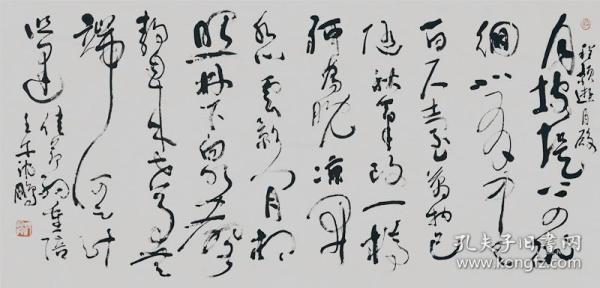 程颢遊月陂
月陂堤上四徘
徊北有中天
百尺臺萬物已
随秋氣改一樽
聊為晚涼開
水心雲影閒相
照林下泉聲
静自来世事無
端何足計
但逢
佳节約重陪
沈鹏
孔夫子旧书网
www.kongfz.com